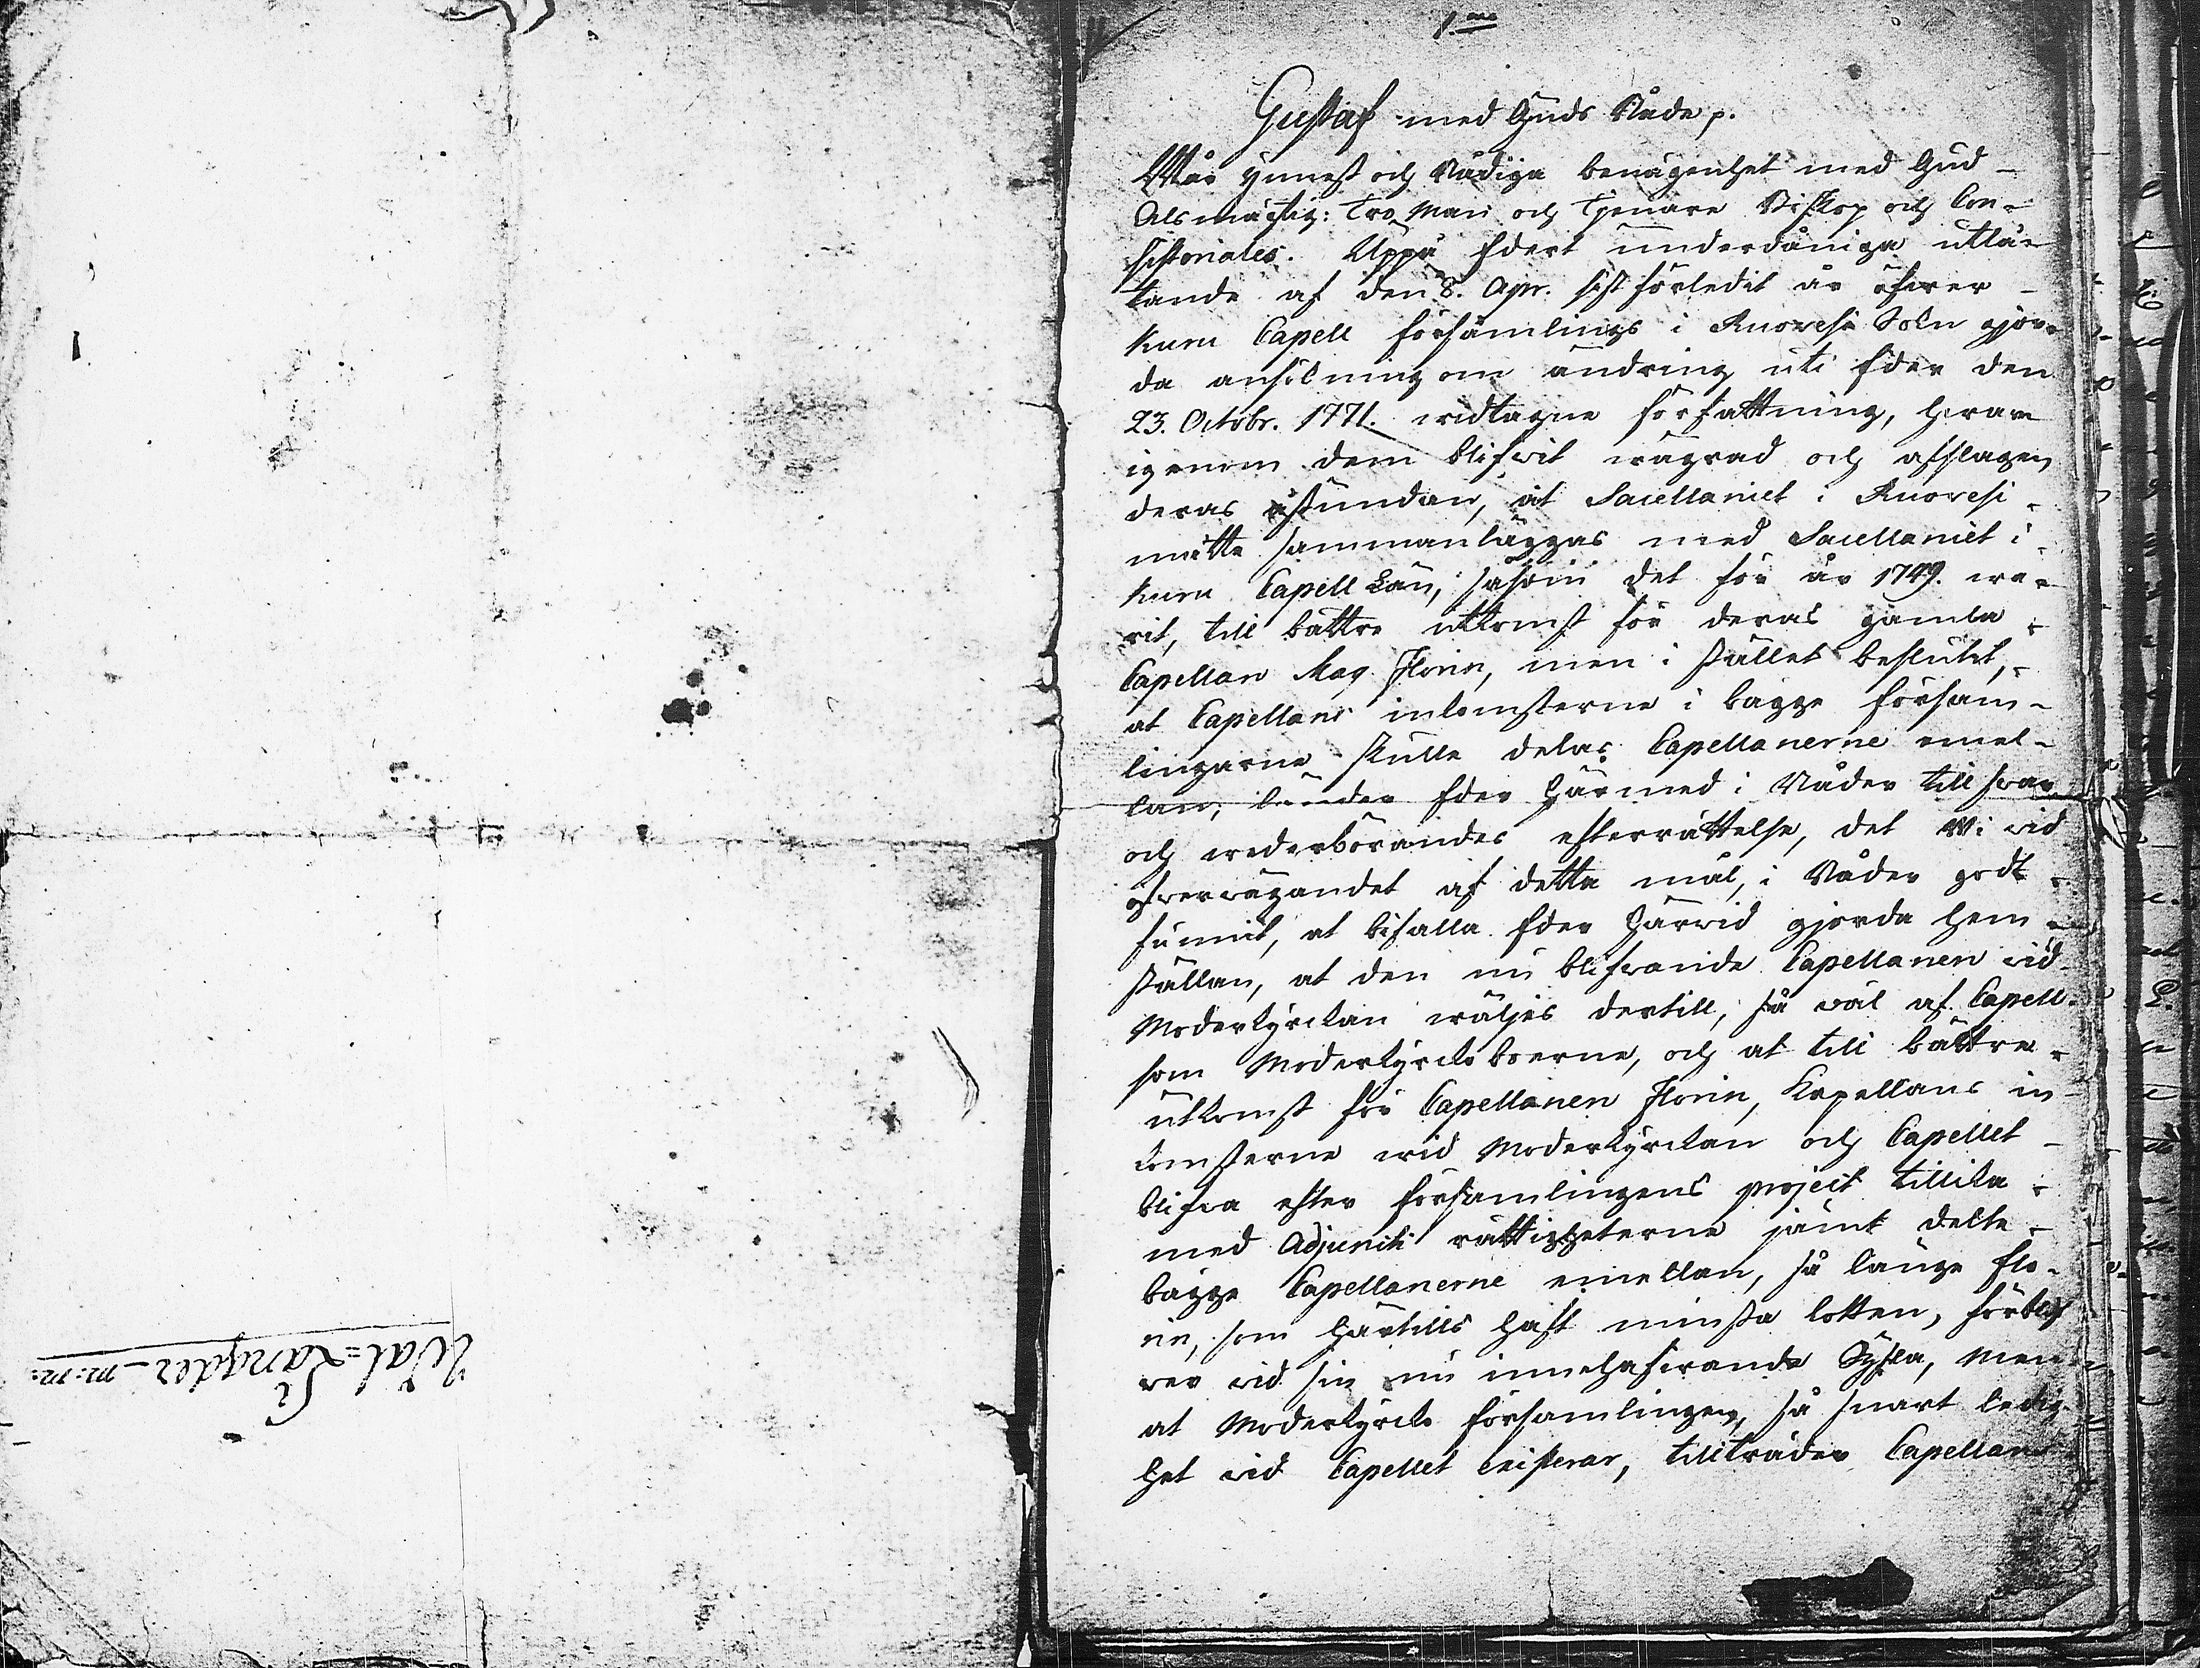 Wal=Längder m: m:
1mo
Gustaf med Guds Nåde p.
Wår ynnest och Nådiga benägenhet med Gud
Alsmägtig: Tro Man och Tjenare Biskop och Con-
sistoriales. Uppå Edert underdåniga utlå-
tande af den 8. Apr. sistförledit år öfwer
Kuru Capell församlings i Ruovesi Sokn gjor-
da ansökning om ändring uti Eder den
23. Octobr. 1771. widtagne författning, hwar-
igenom dem blifwit wägrad och afslagen
deras åstundan, at Sacellaniet i Ruovesi
måtte sammanläggas med Sacellaniet i
Kuru Capell Län, såsom det för år 1749. wa-
rit, till bättre utkomst för deras gamla
Capellan Mag. Florin, men i stället beslutit,
at Capellans inkomsterne i bägge församm-
lingarne skulle delas Capellanerne emel-
lan; länder Eder härmed i Nåder till swar
och wederbörandes efterrättelse, det Wi wid
öfwerwägandet af detta mål, i Nåder godt
funnit, at bifalla Eder härwid gjorda hem-
ställan, at den nu blifwande Capellanen wid
Moderkyrckan wäljes dertill, så wäl af Capell-
som Moderkyrcko boerne, och at till bättre
utkomst för Capellanen Florin, Kapellans in-
komsterne wid Moderkyrckan och Capellet
blifwa efter församlingens project tillika
med Adjuncti rättigheterne jämt delte
bägge Capellanerne emellan, så länge Flo-
rin, som härtills haft minsta lotten, förblif-
wer wid sin nu innehafwande Sysla, men
at Moderkyrcko församlingen, så snart ledig-
het wid Capellet existerar, tillträder Capellans